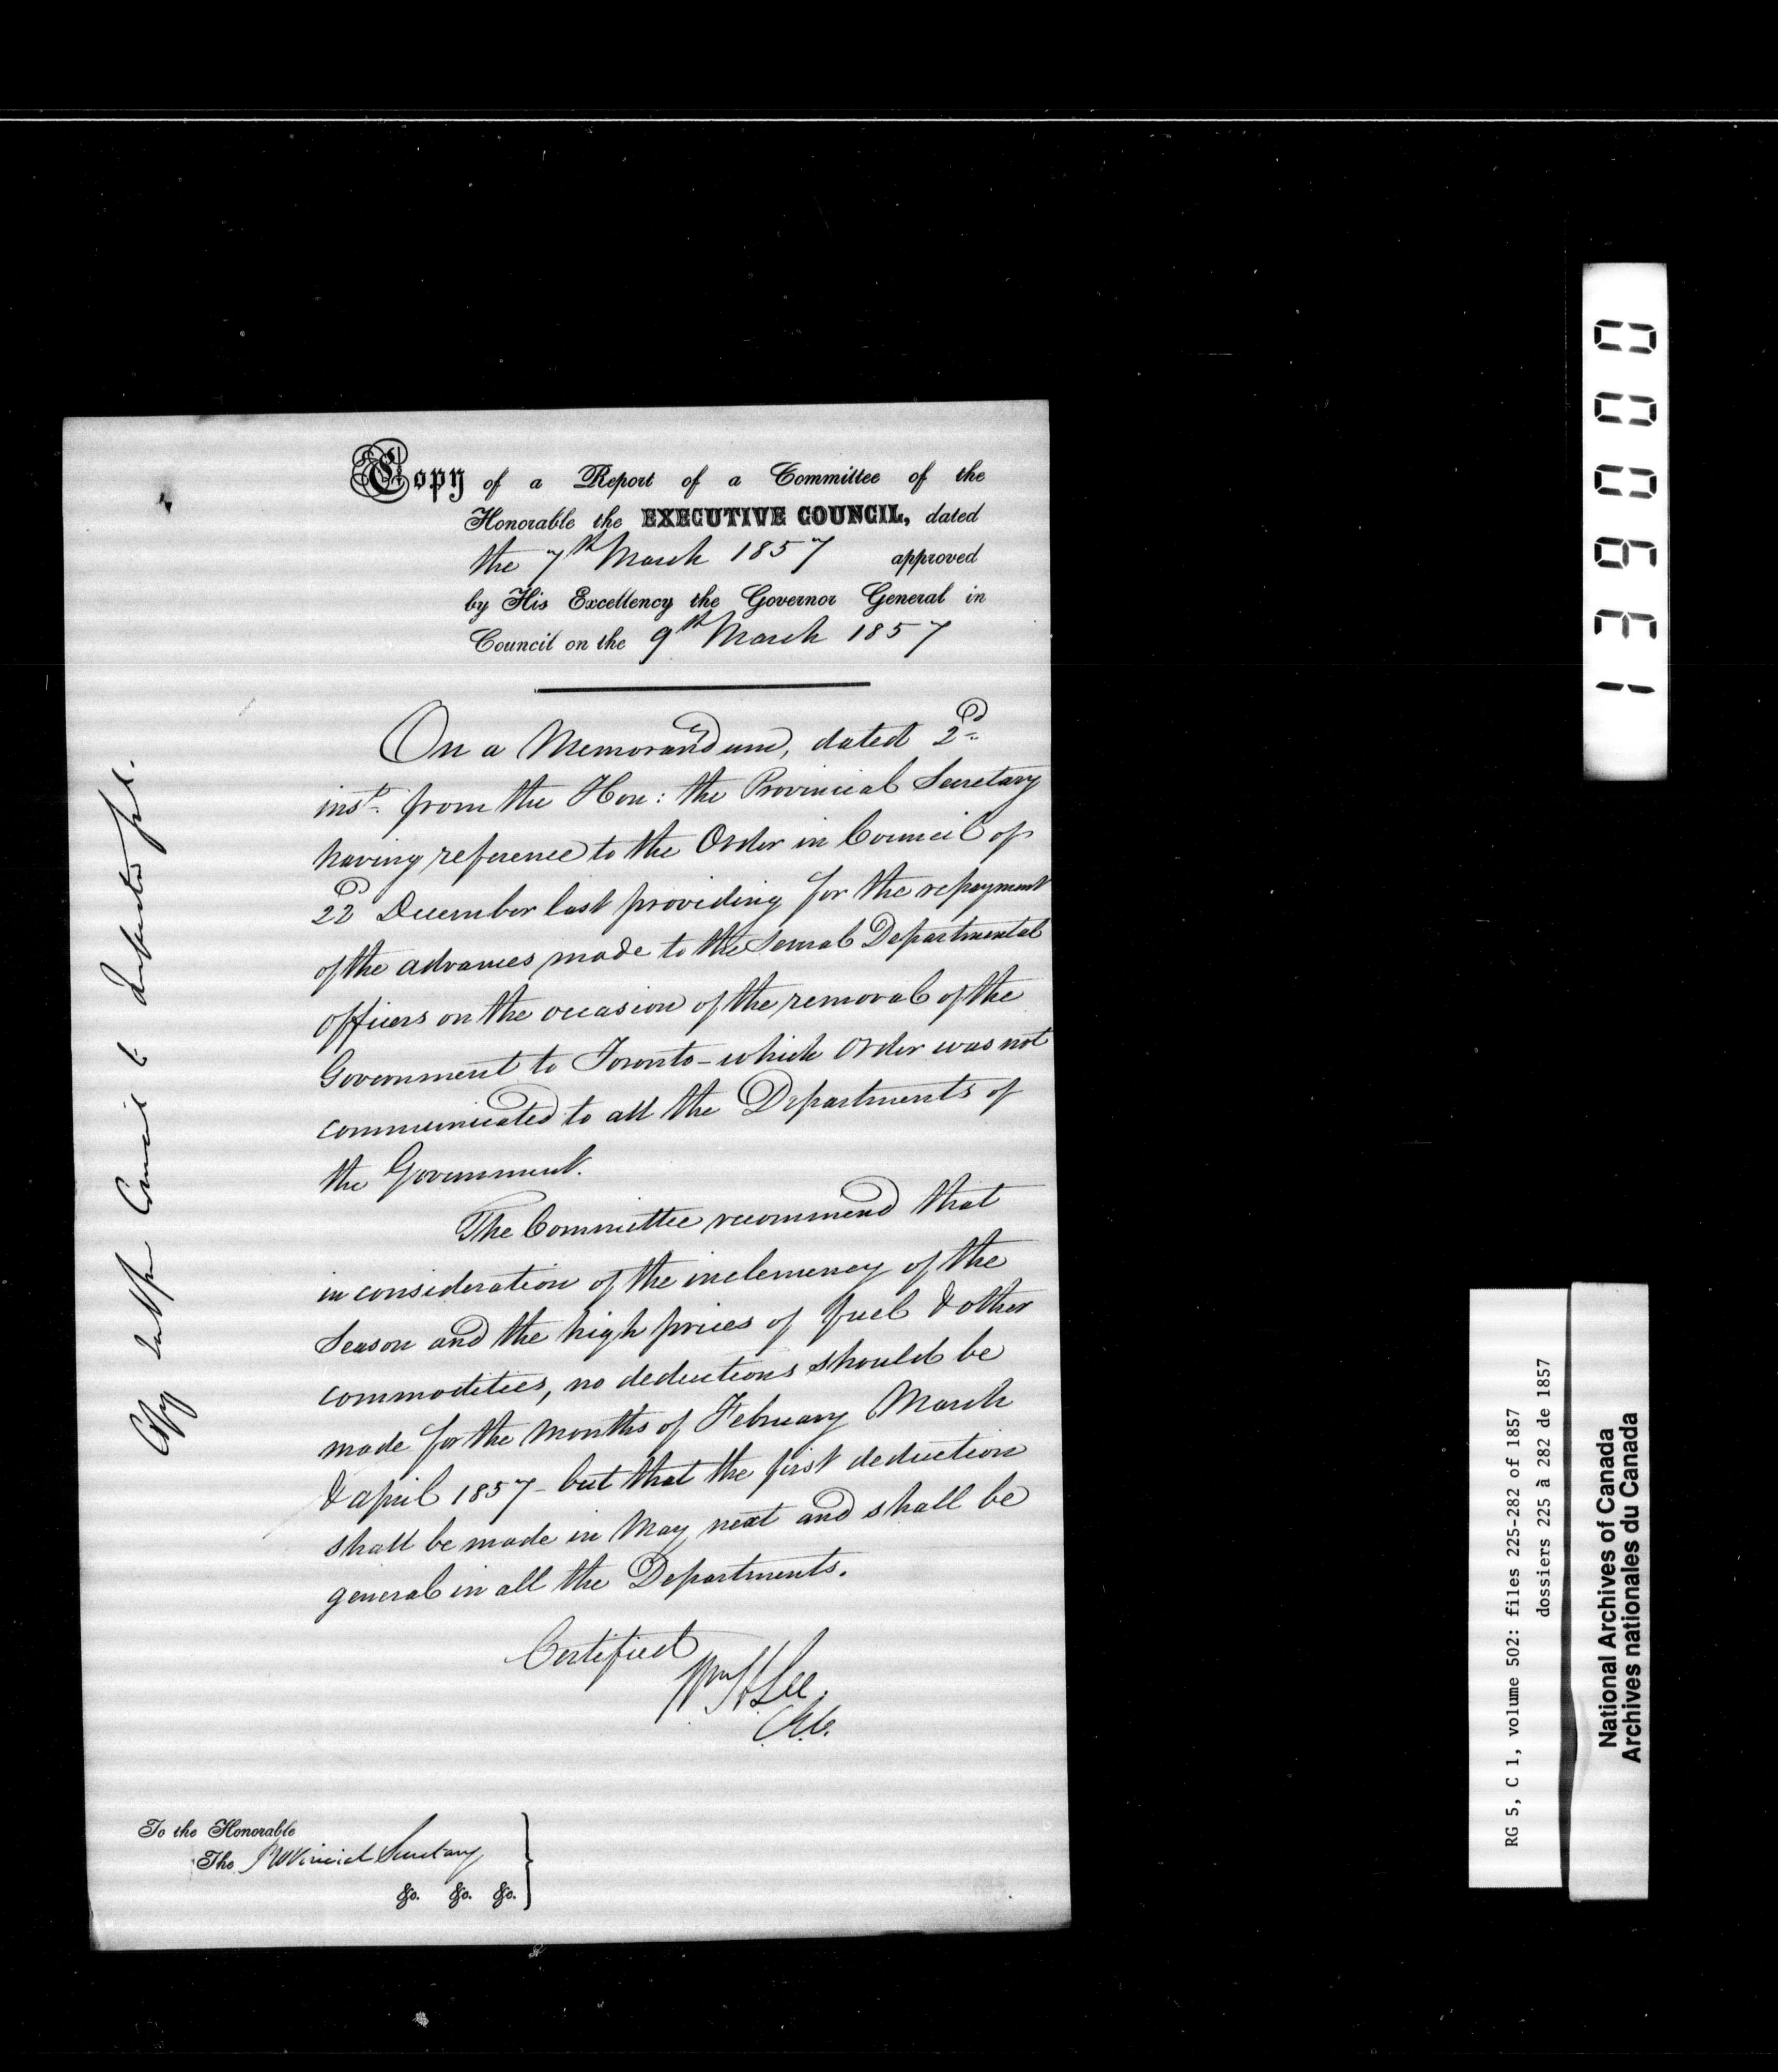 Copy of a Report of a Committee of the
Honorable the EXECUTIVE COUNCIL, dated
the 7th March 1857 approved
by His Excellency the Governor General in
Council on the 9th March 1857
On a Memorandum, dated 2d
inst. from the Hon: the Provincial Secretary
having reference to the Order in Council of
22d December last providing for the repayment
of the advances made to the several Departmental
officers on the occasion of the removal of the
Government to Toronto - which order was not
communicated to all the Departments of
the Government.
The Committee recommend that
in consideration of the inclemency of the
Season and the high prices of fuel & other
commodities, no deductions should be
made for the months of February March
& april 1857 - but that the first deduction
shall be made in May next and shall be
general in all the Departments.
Certified
Wm H Lee
C.E.C.
To the Honorable
The Provincial Secretary
&c. &c. &c.
Copy Council to
139000
RG 5, C 1, volume 502: files 225-282 of 1857
dossiers 225 à 282 de 1857
National Archives of Canada
Archives nationales du Canada